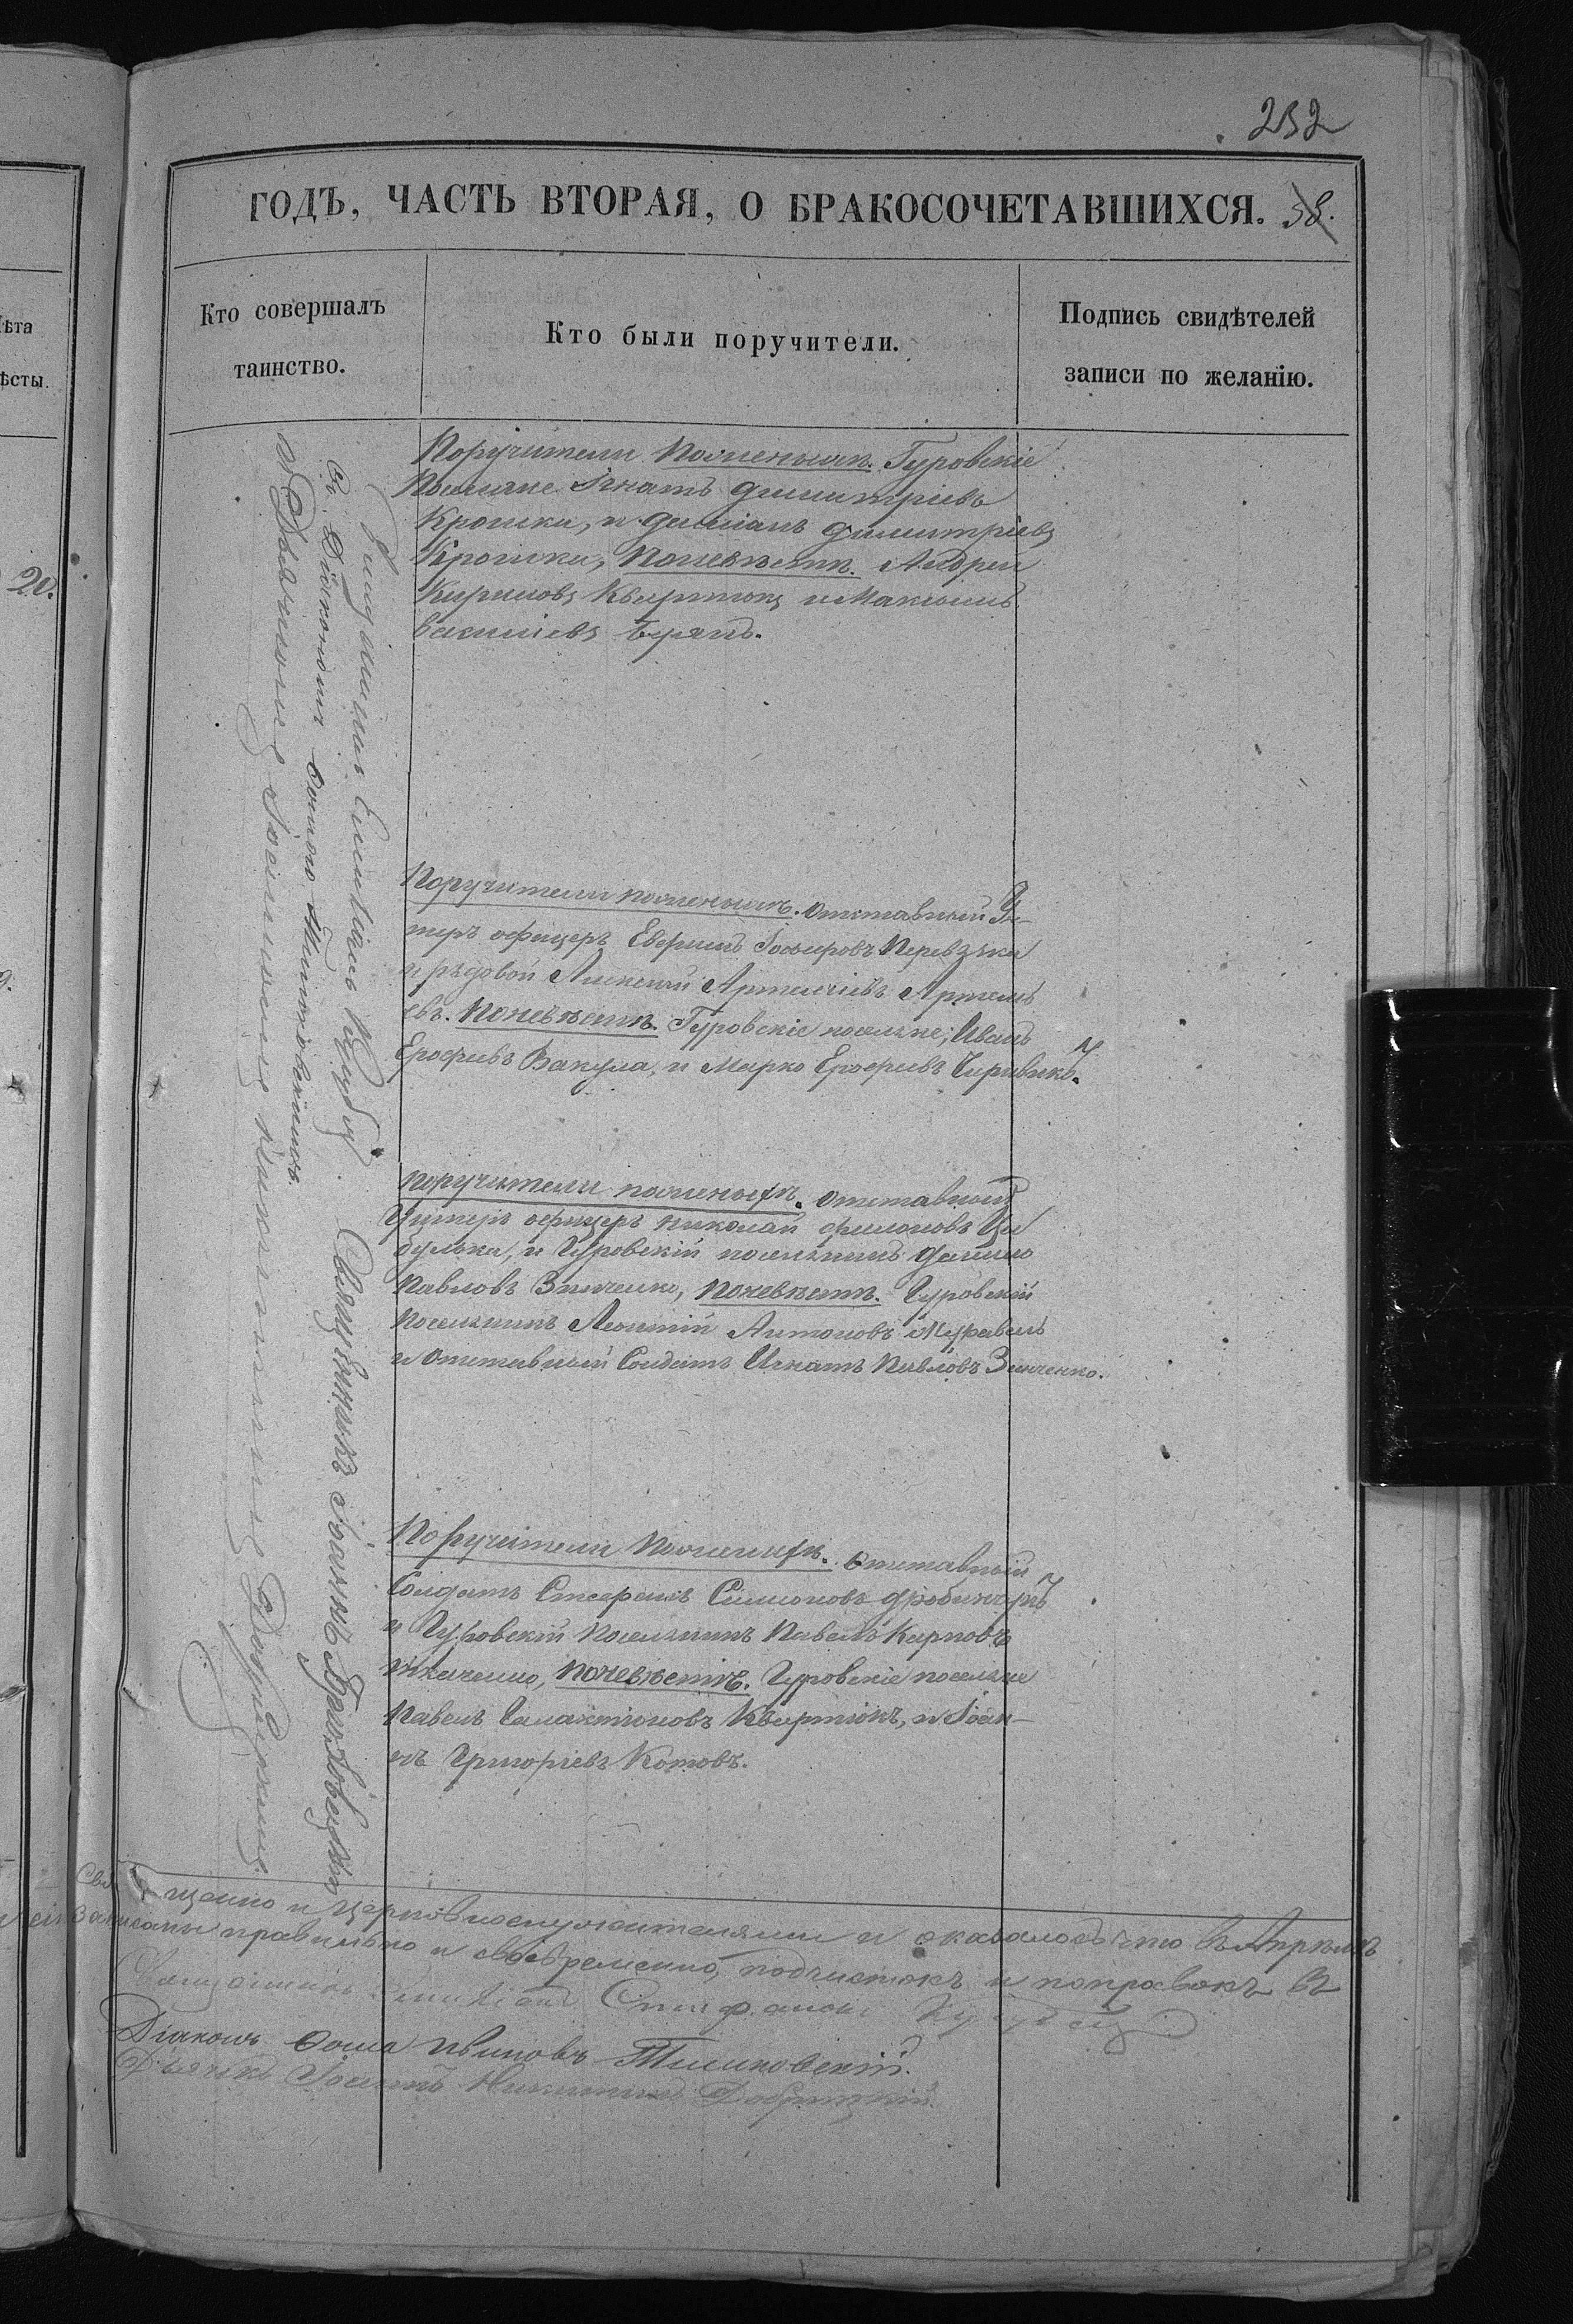 232
ГОДЪ, ЧАСТЬ ВТОРАЯ, О БРАКОСОЧЕТАВШИХСЯ. 58.
Кто совершалъ
таинство.
Кто были поручители.
Подпись свидѣтелей
записи по желанію.
ѣта
ѣсты.
20.
Священникъ Емиліанъ
съ Діакономъ Ѳомою Тимковскимъ
и Дьячкомъ Іосифомъ
Священникъ Іоаннъ
Поручители пожениxѣ. Гуровскіе
поселяне Игнатъ Димитріевъ
Крошка, и Даміанъ Димитріевъ
Крошка, поневѣстѣ. Андрей
Кириловъ Квартюкъ и Максимъ
Василіевъ
Поручители поженихѣ. отставный Ун-
теръ офицеръ
и рядовой Алексѣй Артеміевъ Артемь
евъ. поневѣстѣ. Гуровскіе поселяне, Иванъ
Ерофѣевъ Вакула, и Марко Ерофѣевъ
поручители поженихѣ. отставный
Унтеръ офицеръ Николай Филоновъ Ци
булька, и Гуровскій поселянинъ
Павловъ Зинченко, поневѣстѣ. Гуровскій
поселянинъ Леонтій Антоновъ Журавель
и отставный Солдатъ Игнатъ Павловъ Зинченко.
Поручители поженихѣ. отставный
Солдатъ Стефанъ Симоновъ
и Гуровскій поселянинъ Павелъ Карповъ
Ткаченко, поневѣстѣ. Гуровскіе поселяне
Павелъ Галактіоновъ Квартюкъ, и Іоан-
нъ Григоріевъ Котовъ.
Священно и церковнослужителями и оказалось что въ Апрѣлѣ
записаны правильно и своевременно, подчистокъ и поправокъ
Священникъ Емиліанъ
Діаконъ Ѳома Ивановъ Тимковскій.
Дьячекъ Іосифъ Никитинъ